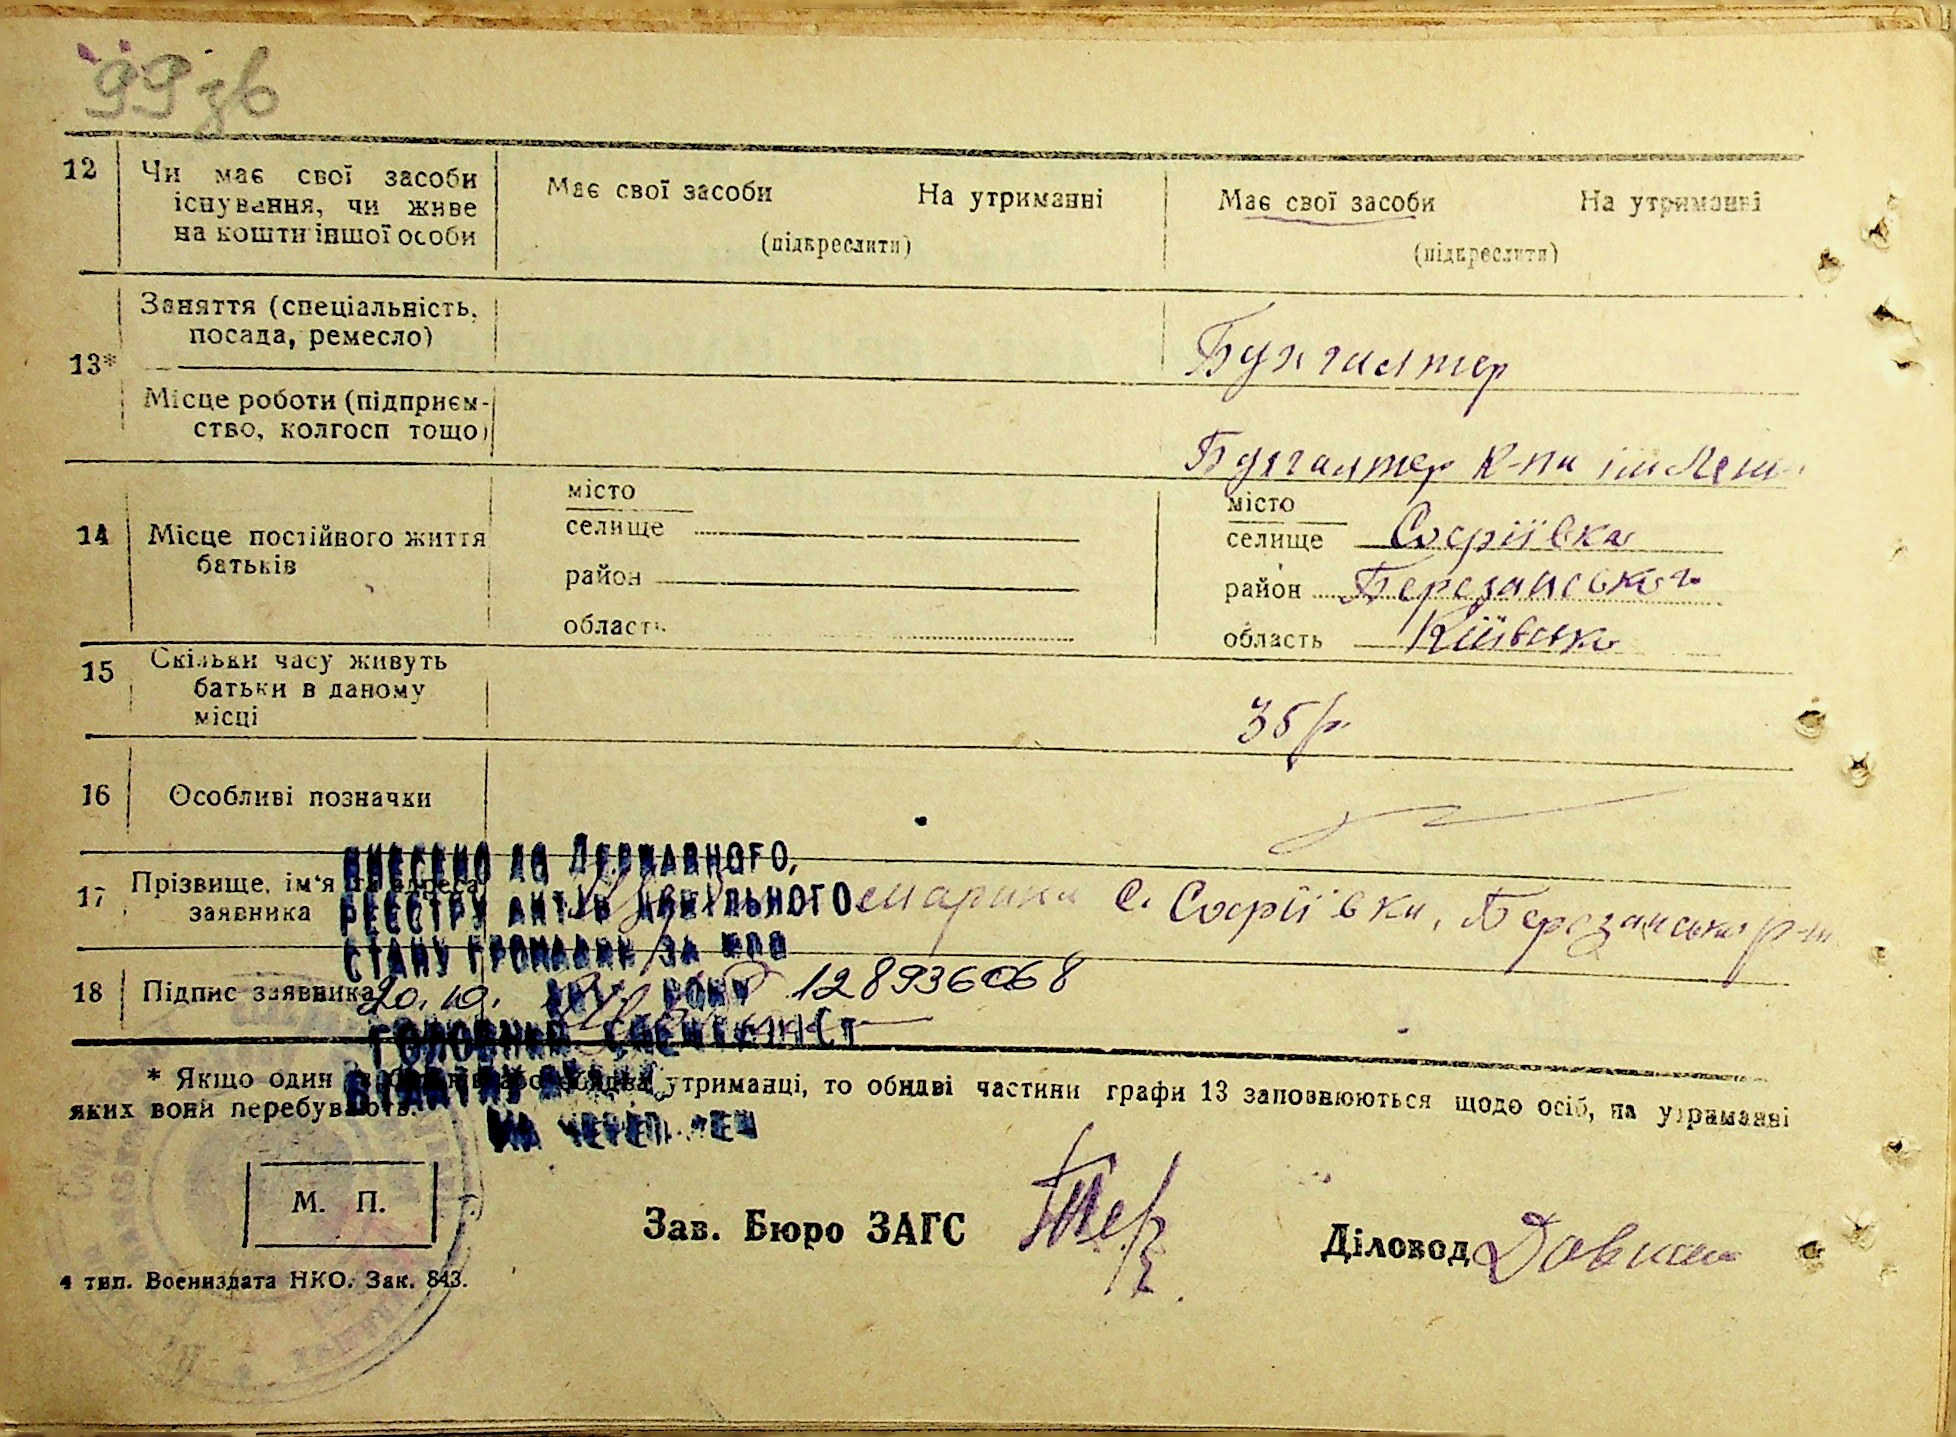 99 зв
12 Чи має свої засоби існування, чи живе на кошти іншої особи
Має свої засоби На утриманні
(підкреслити)
Має свої засоби На утриманні
(підкреслити)
13*
Заняття (спеціальність, посада, ремесло)
Бухгалтер
Місце роботи (підприємство, колгосп тощо)
Бухгалтер к-пи ім Лен
14 Місце постійного життя батьків
місто
селище
район
область
місто
селище Софіївка
район Березанського
область Київська
15 Скільки часу живуть батьки в даному місці
35 р
16 Особливі позначки
17 Прізвище, ім'я та адреса заявника
Марина С. Софіївки, Березанська р-н
18 Підпис заявника
ВНЕСЕНО ДО ДЕРЖАВНОГО
РЕЄСТРУ АКТІВ ЦИВІЛЬНОГО
СТАНУ ГРОМАДЯН ЗА №
20.10. РОКУ 128936068
ГОЛОВНИЙ СПЕЦІАЛІСТ
* Якщо один утриманці, то обидві частини графи 13 заповнюються щодо осіб, на утриманні
яких вони перебувають.
М. П.
Зав. Бюро ЗАГС
Діловод
4 тип. Воениздата НКО. Зак. 843.